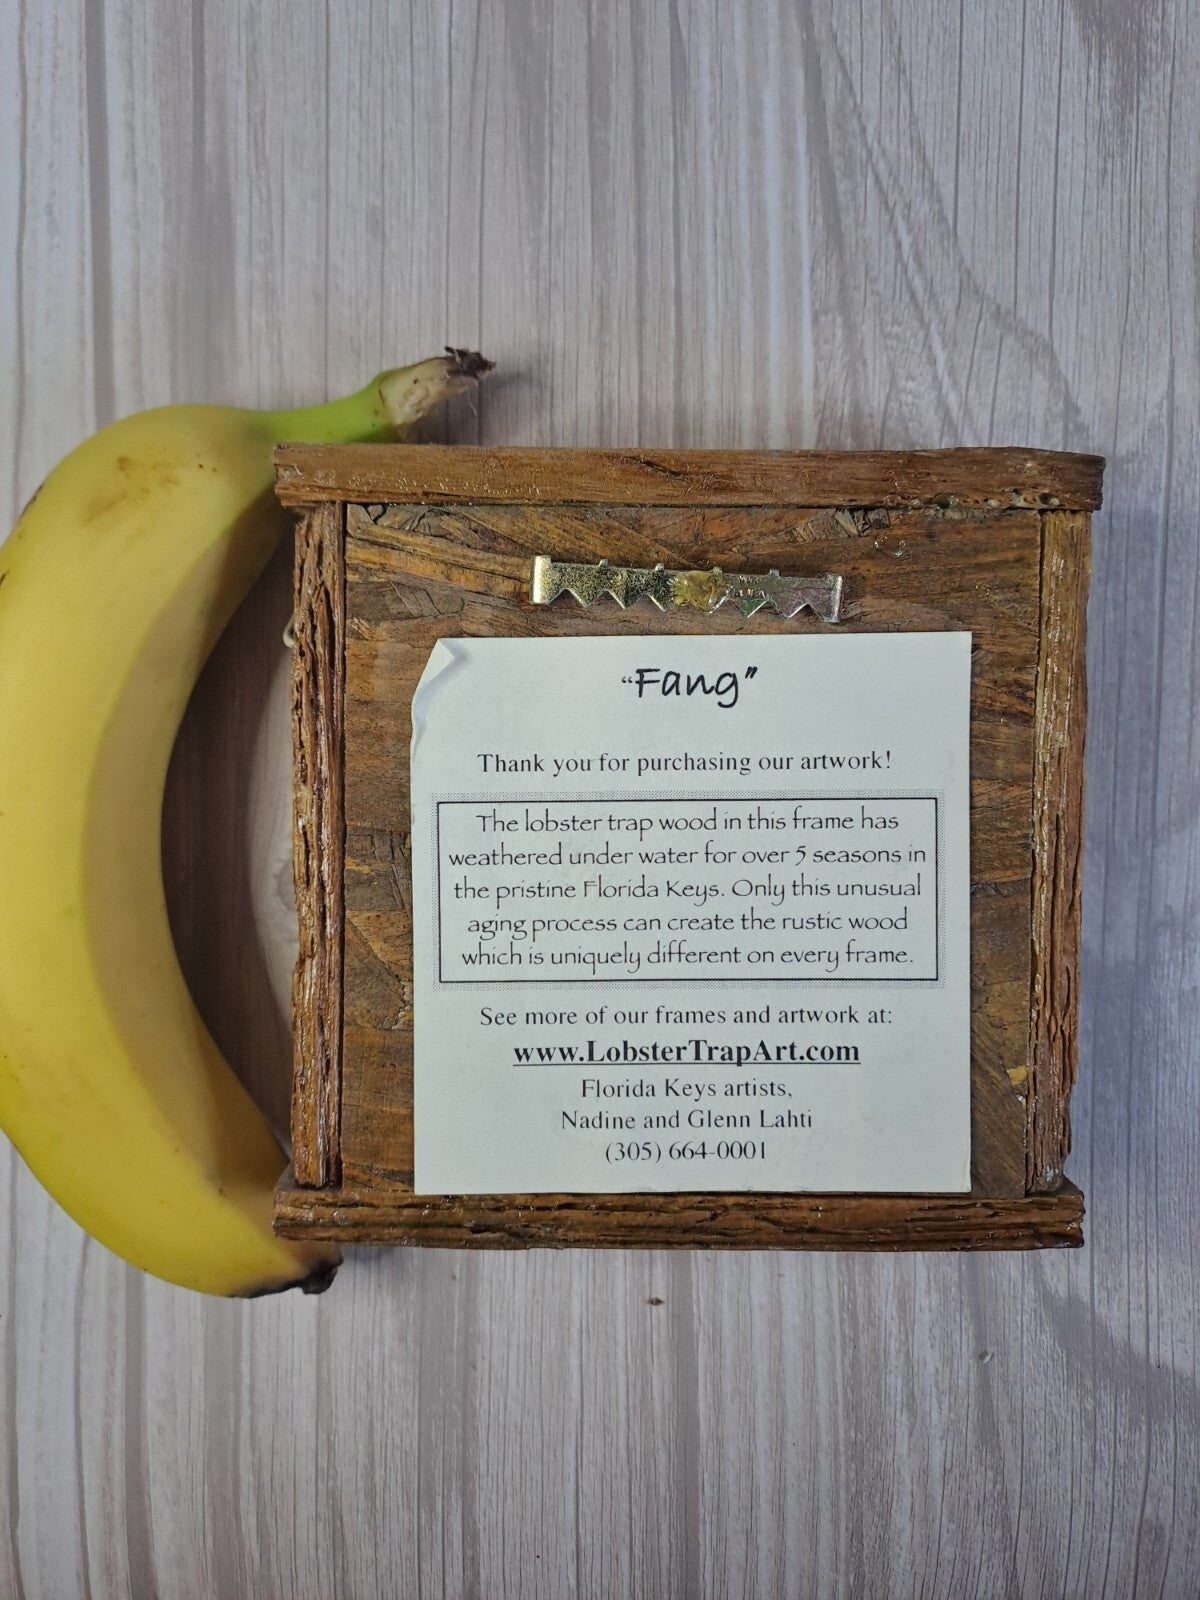 “Fang”
Thank you for purchasing our artwork!
The lobster trap wood in this frame has
weathered under water for over 5 seasons in
the pristine Florida Keys. Only this unusual
aging process can create the rustic wood
which is uniquely different on every frame.
See more of our frames and artwork at:
www.LobsterTrapArt.com
Florida Keys artists,
Nadine and Glenn Lahti
(305) 664-0001